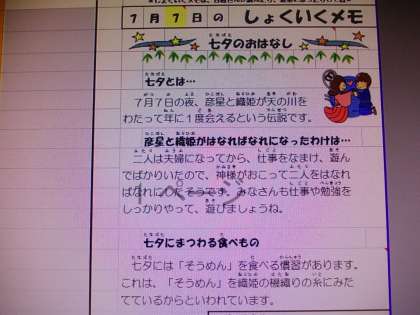 7月7日の しょくいくメモ
七夕のおはなし
七夕とは…
7月7日の夜、彦星と織姫が天の川を
わたって年に1度会えるという伝説です。
彦星と織姫がはなればなれになったわけは…
二人は夫婦になってから、仕事をなまけ、遊ん
でばかりいたので、神様がおこって二人をはなれ
ばなれにしたそうです。みなさんも仕事や勉強を
しっかりやって、遊びましょうね。
1ページ
七夕にまつわる食べもの
七夕には「そうめん」を食べる慣習があります。
これは、「そうめん」を織姫の機織りの糸にみた
てているからといわれています。